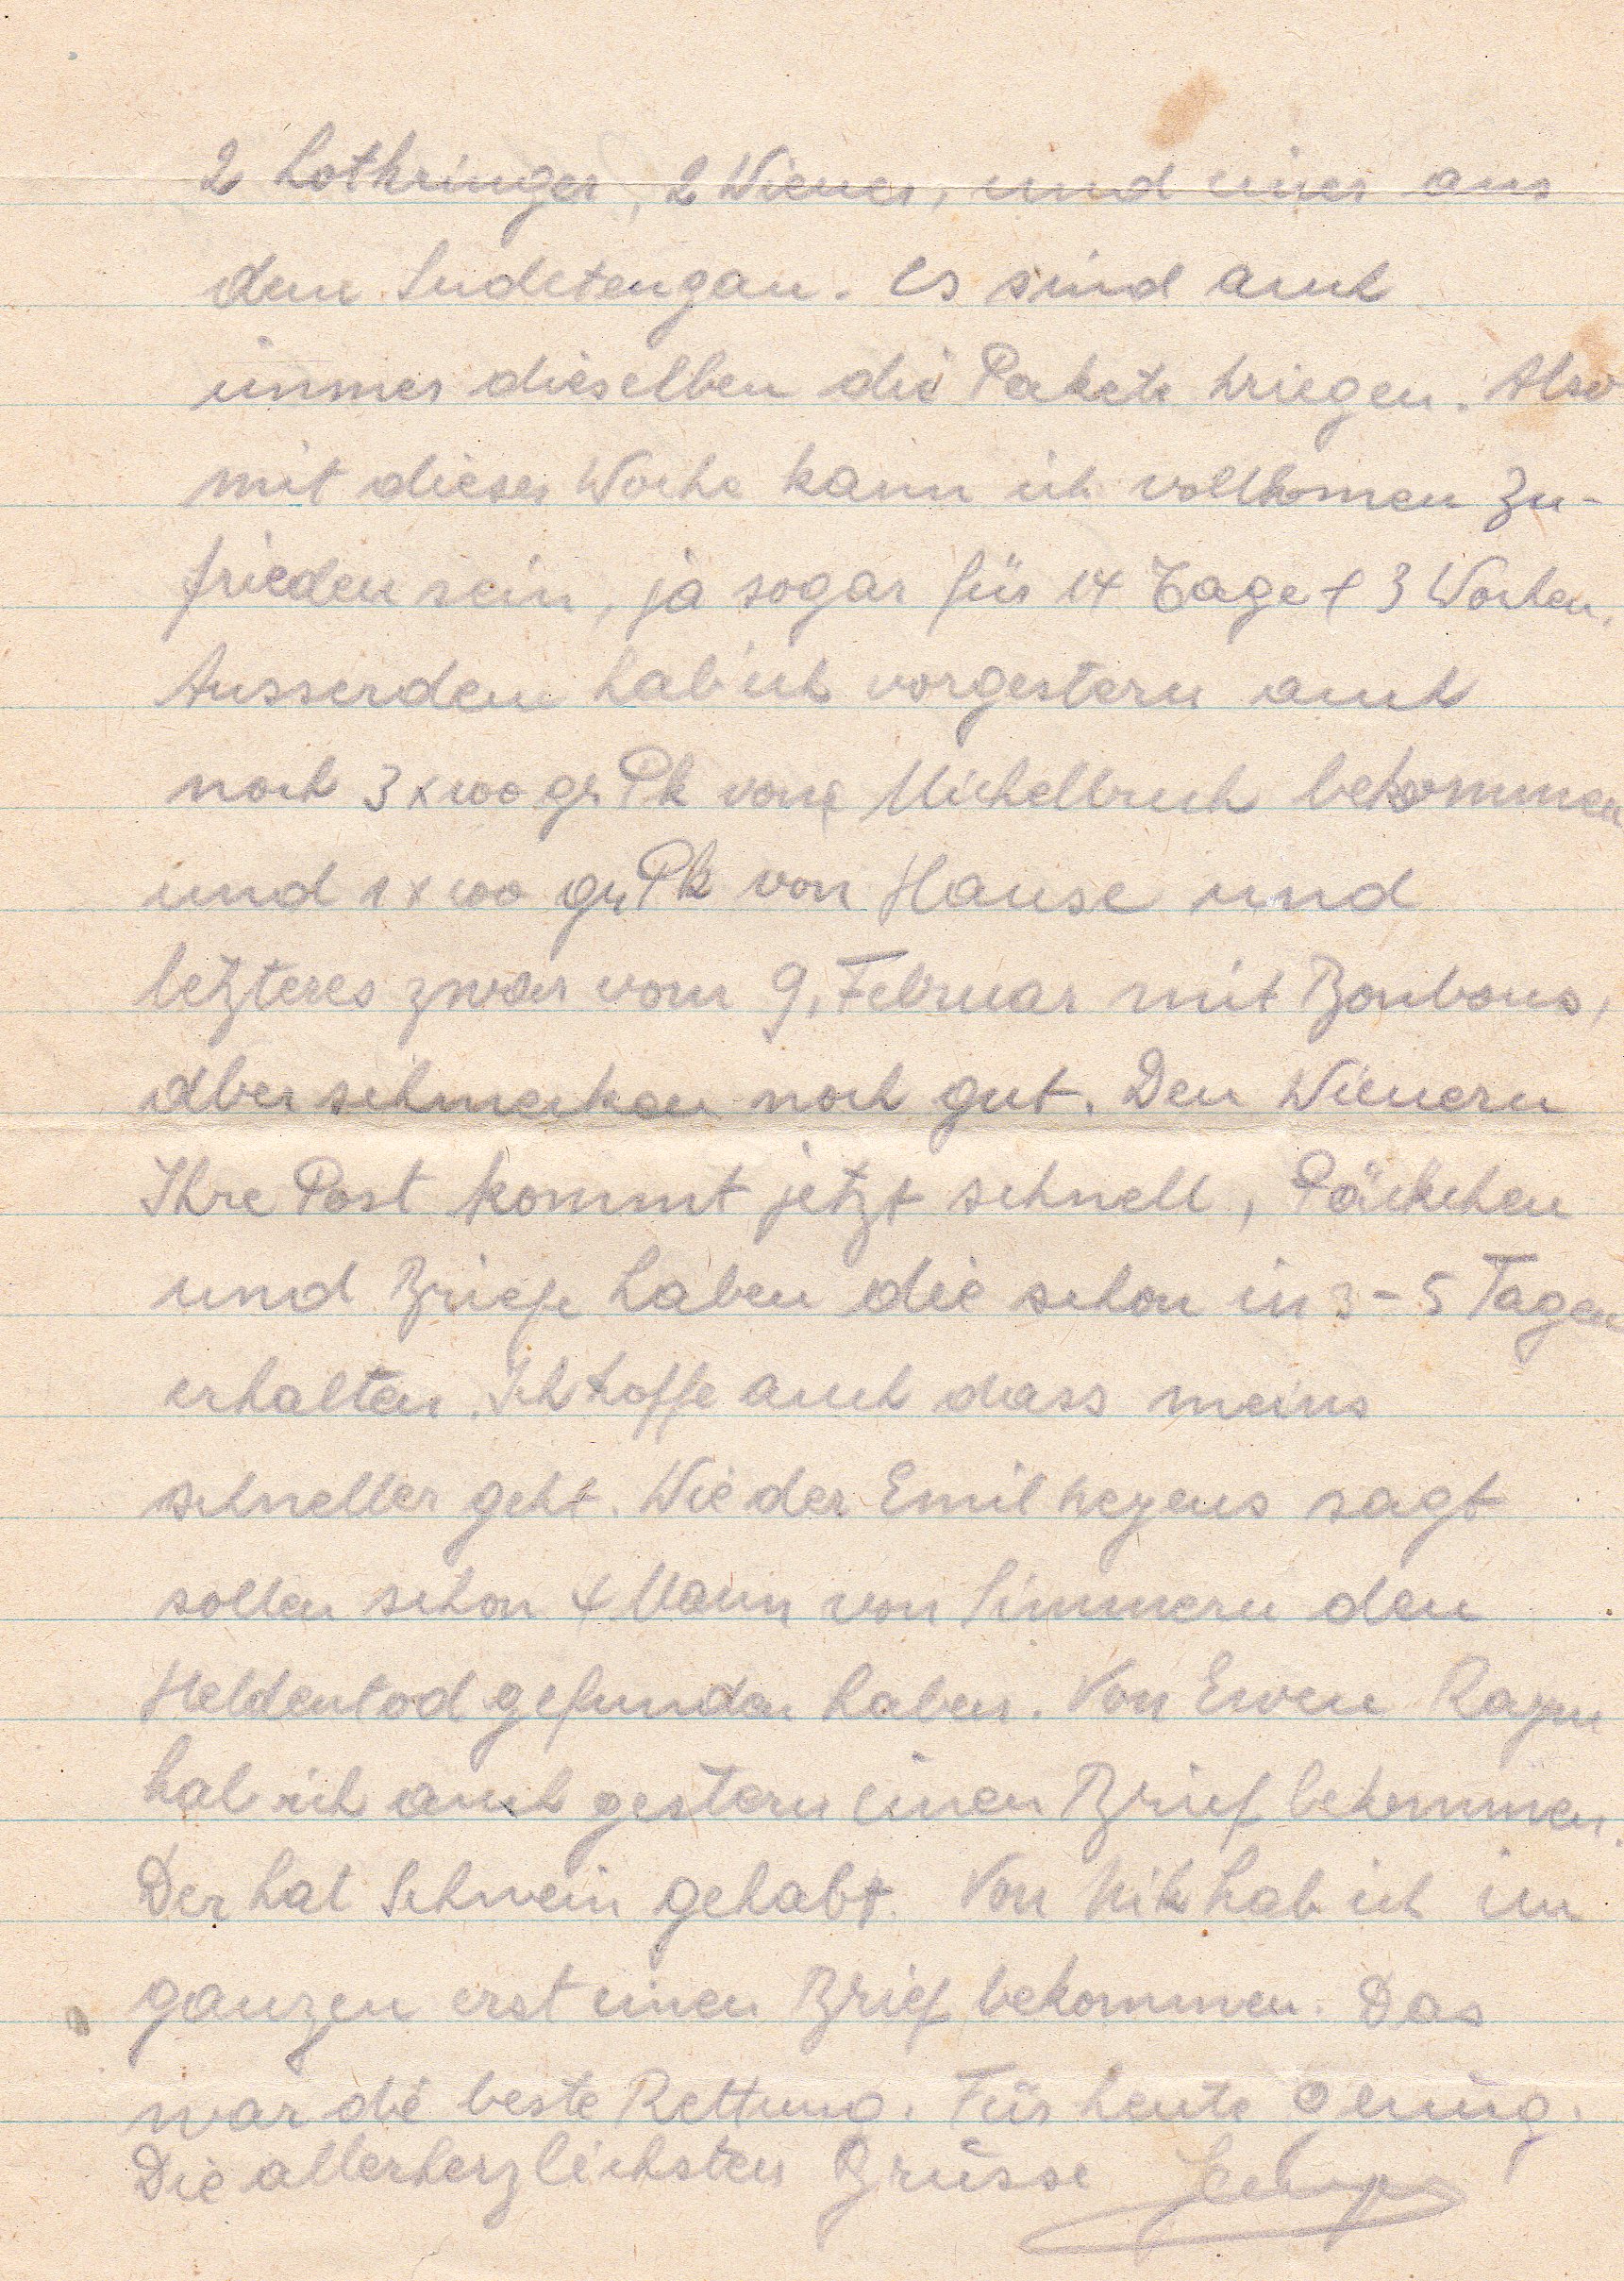 2 Lothringer, 2 Wiener, und einer aus
dem Sudetengau. Es sind auch
immer dieselben die Pakete kriegen. Also
mit dieser Woche kann ich vollkomen zu-
frieden sein, ja sogar für 14 Tage & 3 Wochen.
Ausserdem hab ich vorgestern auch
noch 3 x 100 gr Pk von Michelbuch bekommen
und 1 x 100 gr Pk von Hause und
letzteres zwar vom 9. Februar mit Bonbons,
aber schmecken noch gut. Den Wienern
Ihre Post kommt jetzt schnell, Päckchen
und Briefe haben die schon in 3-5 Tagen
erhalten. Ich hoffe auch dass meins
schneller geht. Wie der Emil sagt
sollen schon 4 Mann von Simmern den
Heldentod gefunden haben. Von Ewen
hab ich auch gestern einen Brief bekommen.
Der hat Schwein gehabt. Von Nik hab ich im
ganzen erst einen Brief bekommen. Das
war die beste Rettung. Für heute genug.
Die allerherzlichsten Grüsse